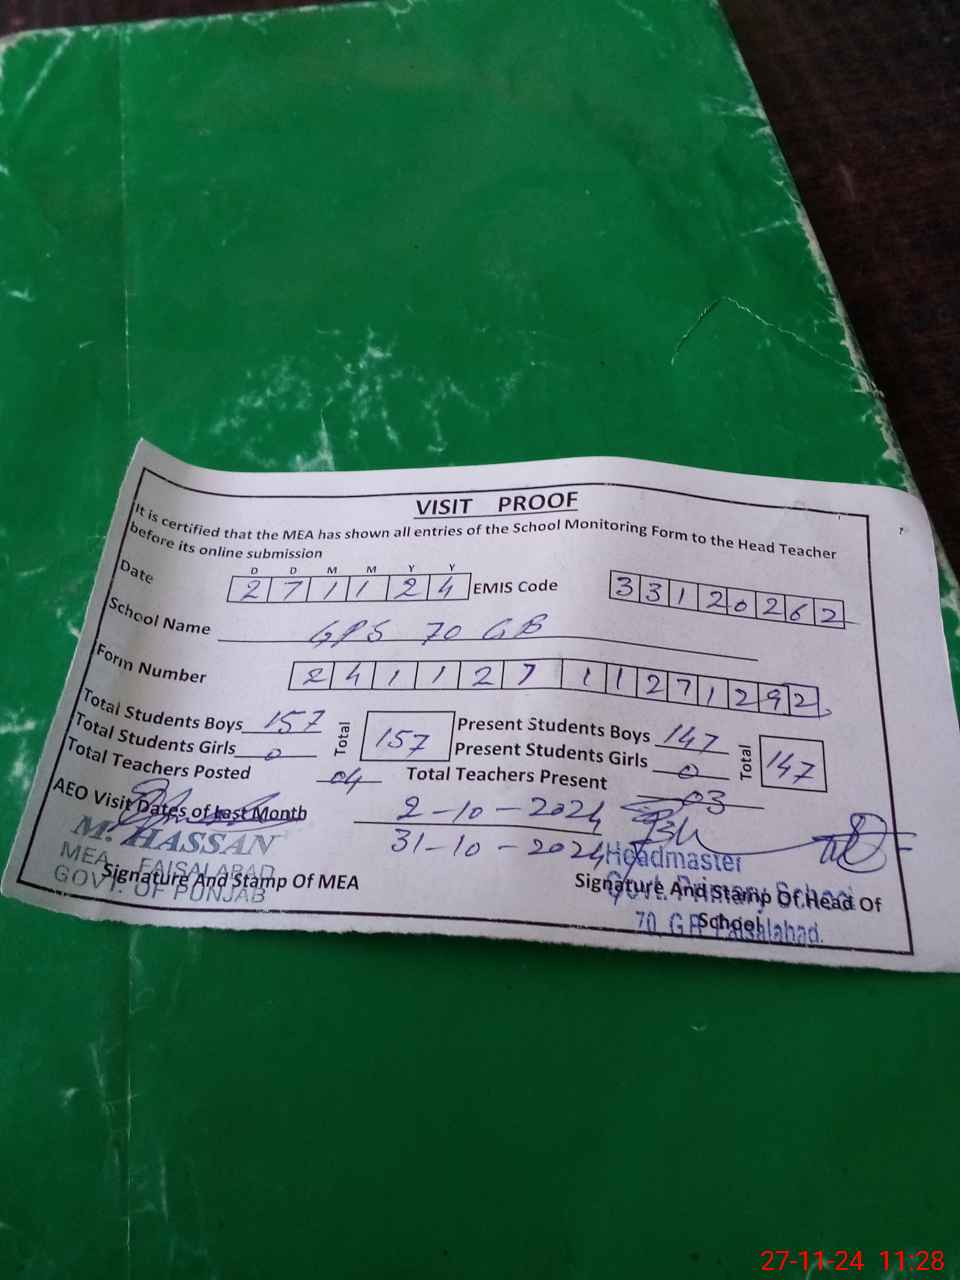 VISIT PROOF
It is certified that the MEA has shown all entries of the School Monitoring Form to the Head Teacher
before its online submission
D D M M Y Y
Date 2 7 1 1 2 4 EMIS Code 3 3 1 2 0 2 6 2
School Name GPS 70 GB
Form Number 2 4 1 1 2 7 1 1 2 7 1 2 9 2
Total Students Boys 157 Total 157 Present Students Boys 147 Total 147
Total Students Girls 0 Present Students Girls 0
Total Teachers Posted 04 Total Teachers Present 03
AEO Visit Dates of Last Month 2-10-2024
31-10-2024
M. HASSAN
MEA FAISALABAD
GOVT. OF PUNJAB
Signature And Stamp Of MEA
Headmaster
Govt. Primary School
70 GB Faisalabad.
Signature And Stamp Of Head Of
School
27-11-24 11:28